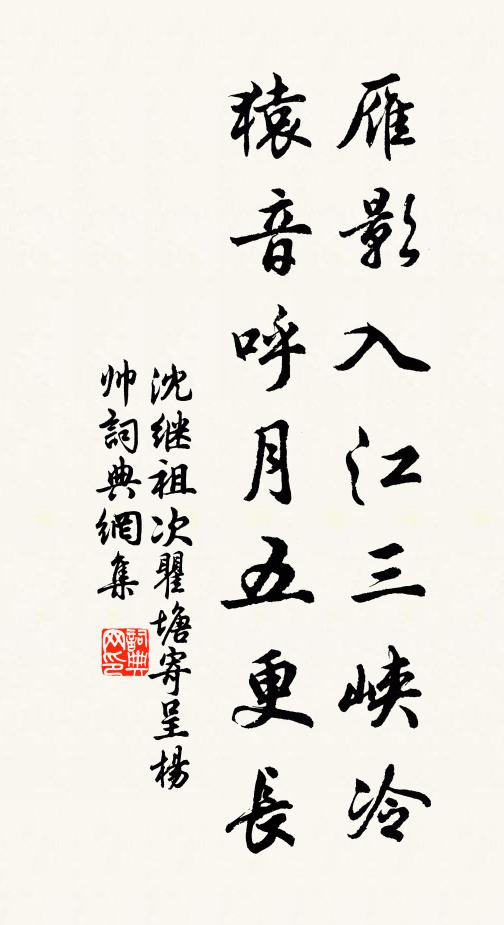 雁影入江三峡冷
猿音呼月五更長
沈继祖次瞿塘寄呈楊
帅詞典網集
詞典
网印